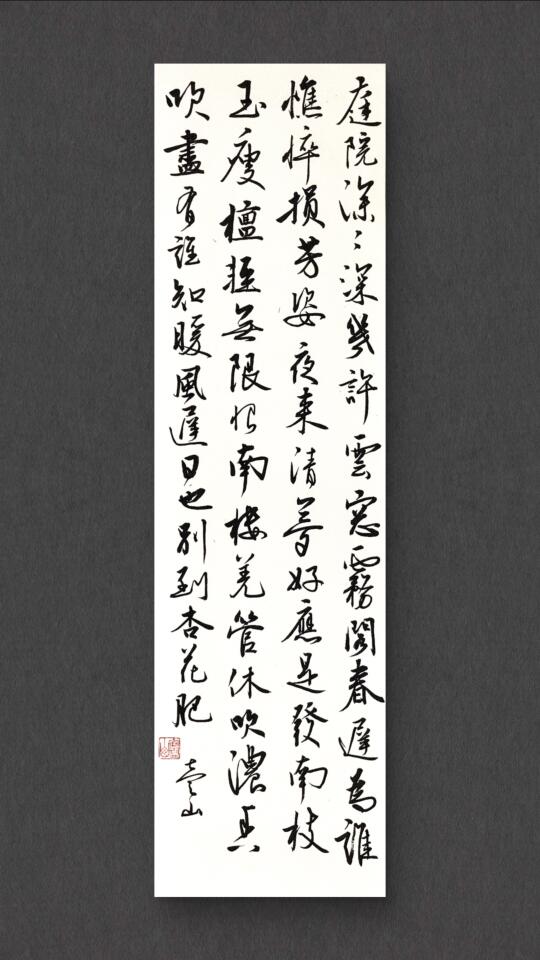 庭院深〻深幾許雲窗霧閣春遲為誰
憔悴損芳姿夜來清夢好應是發南枝
玉瘦檀輕無限恨南樓羌管休吹濃香
吹盡有誰知暖風遲日也別到杏花肥
山